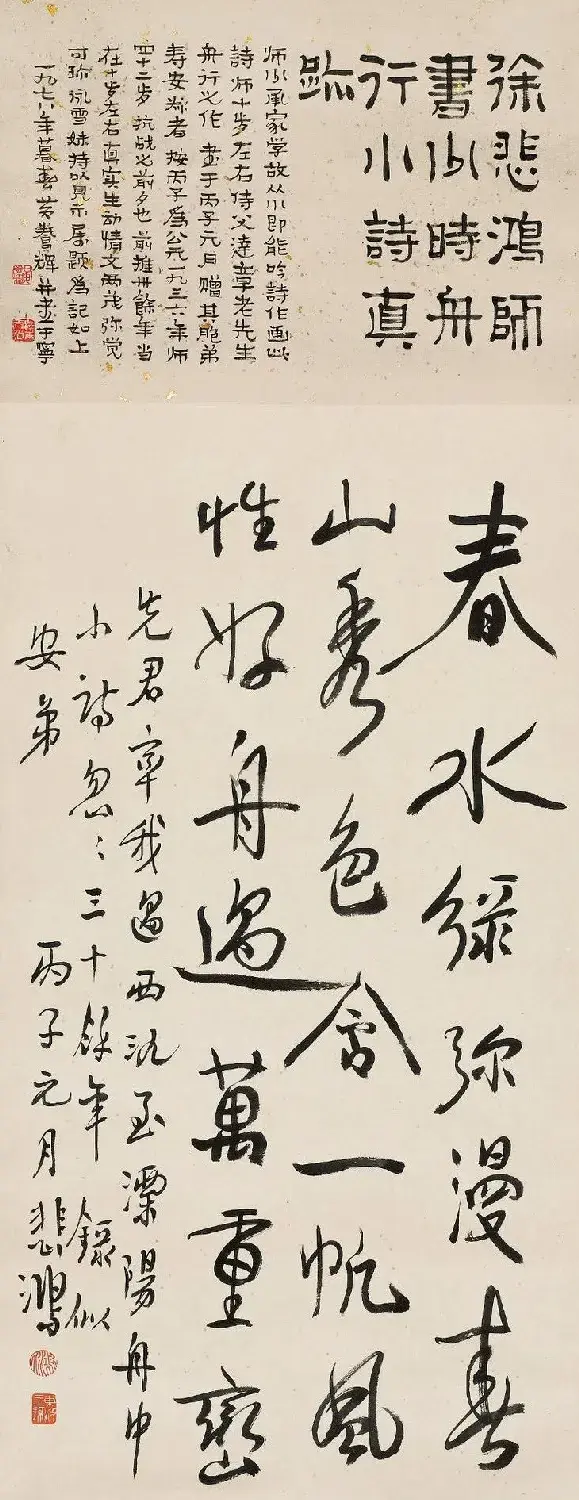 徐悲鴻師
書少時舟
行小詩真
跡
师少承家学故从小即能吟詩作画此
詩师十岁左右侍父達章老先生
舟行之作 書于丙子元月赠其胞弟
寿安弟者 按丙子為公元一九三六年师
四十二岁 抗战之前夕也 前推卅餘年当
在十岁左右真实生动情文两茂弥觉
可珍 佩雪妹持以見示属题為記如上
一九七八年暮春 黄養辉并書于寧
春水綠弥漫春
山秀色含一帆風
性好舟過萬重巒
先君率我過西氿至溧陽舟中
小詩忽〻三十餘年 錄似
安弟 丙子元月 悲鴻